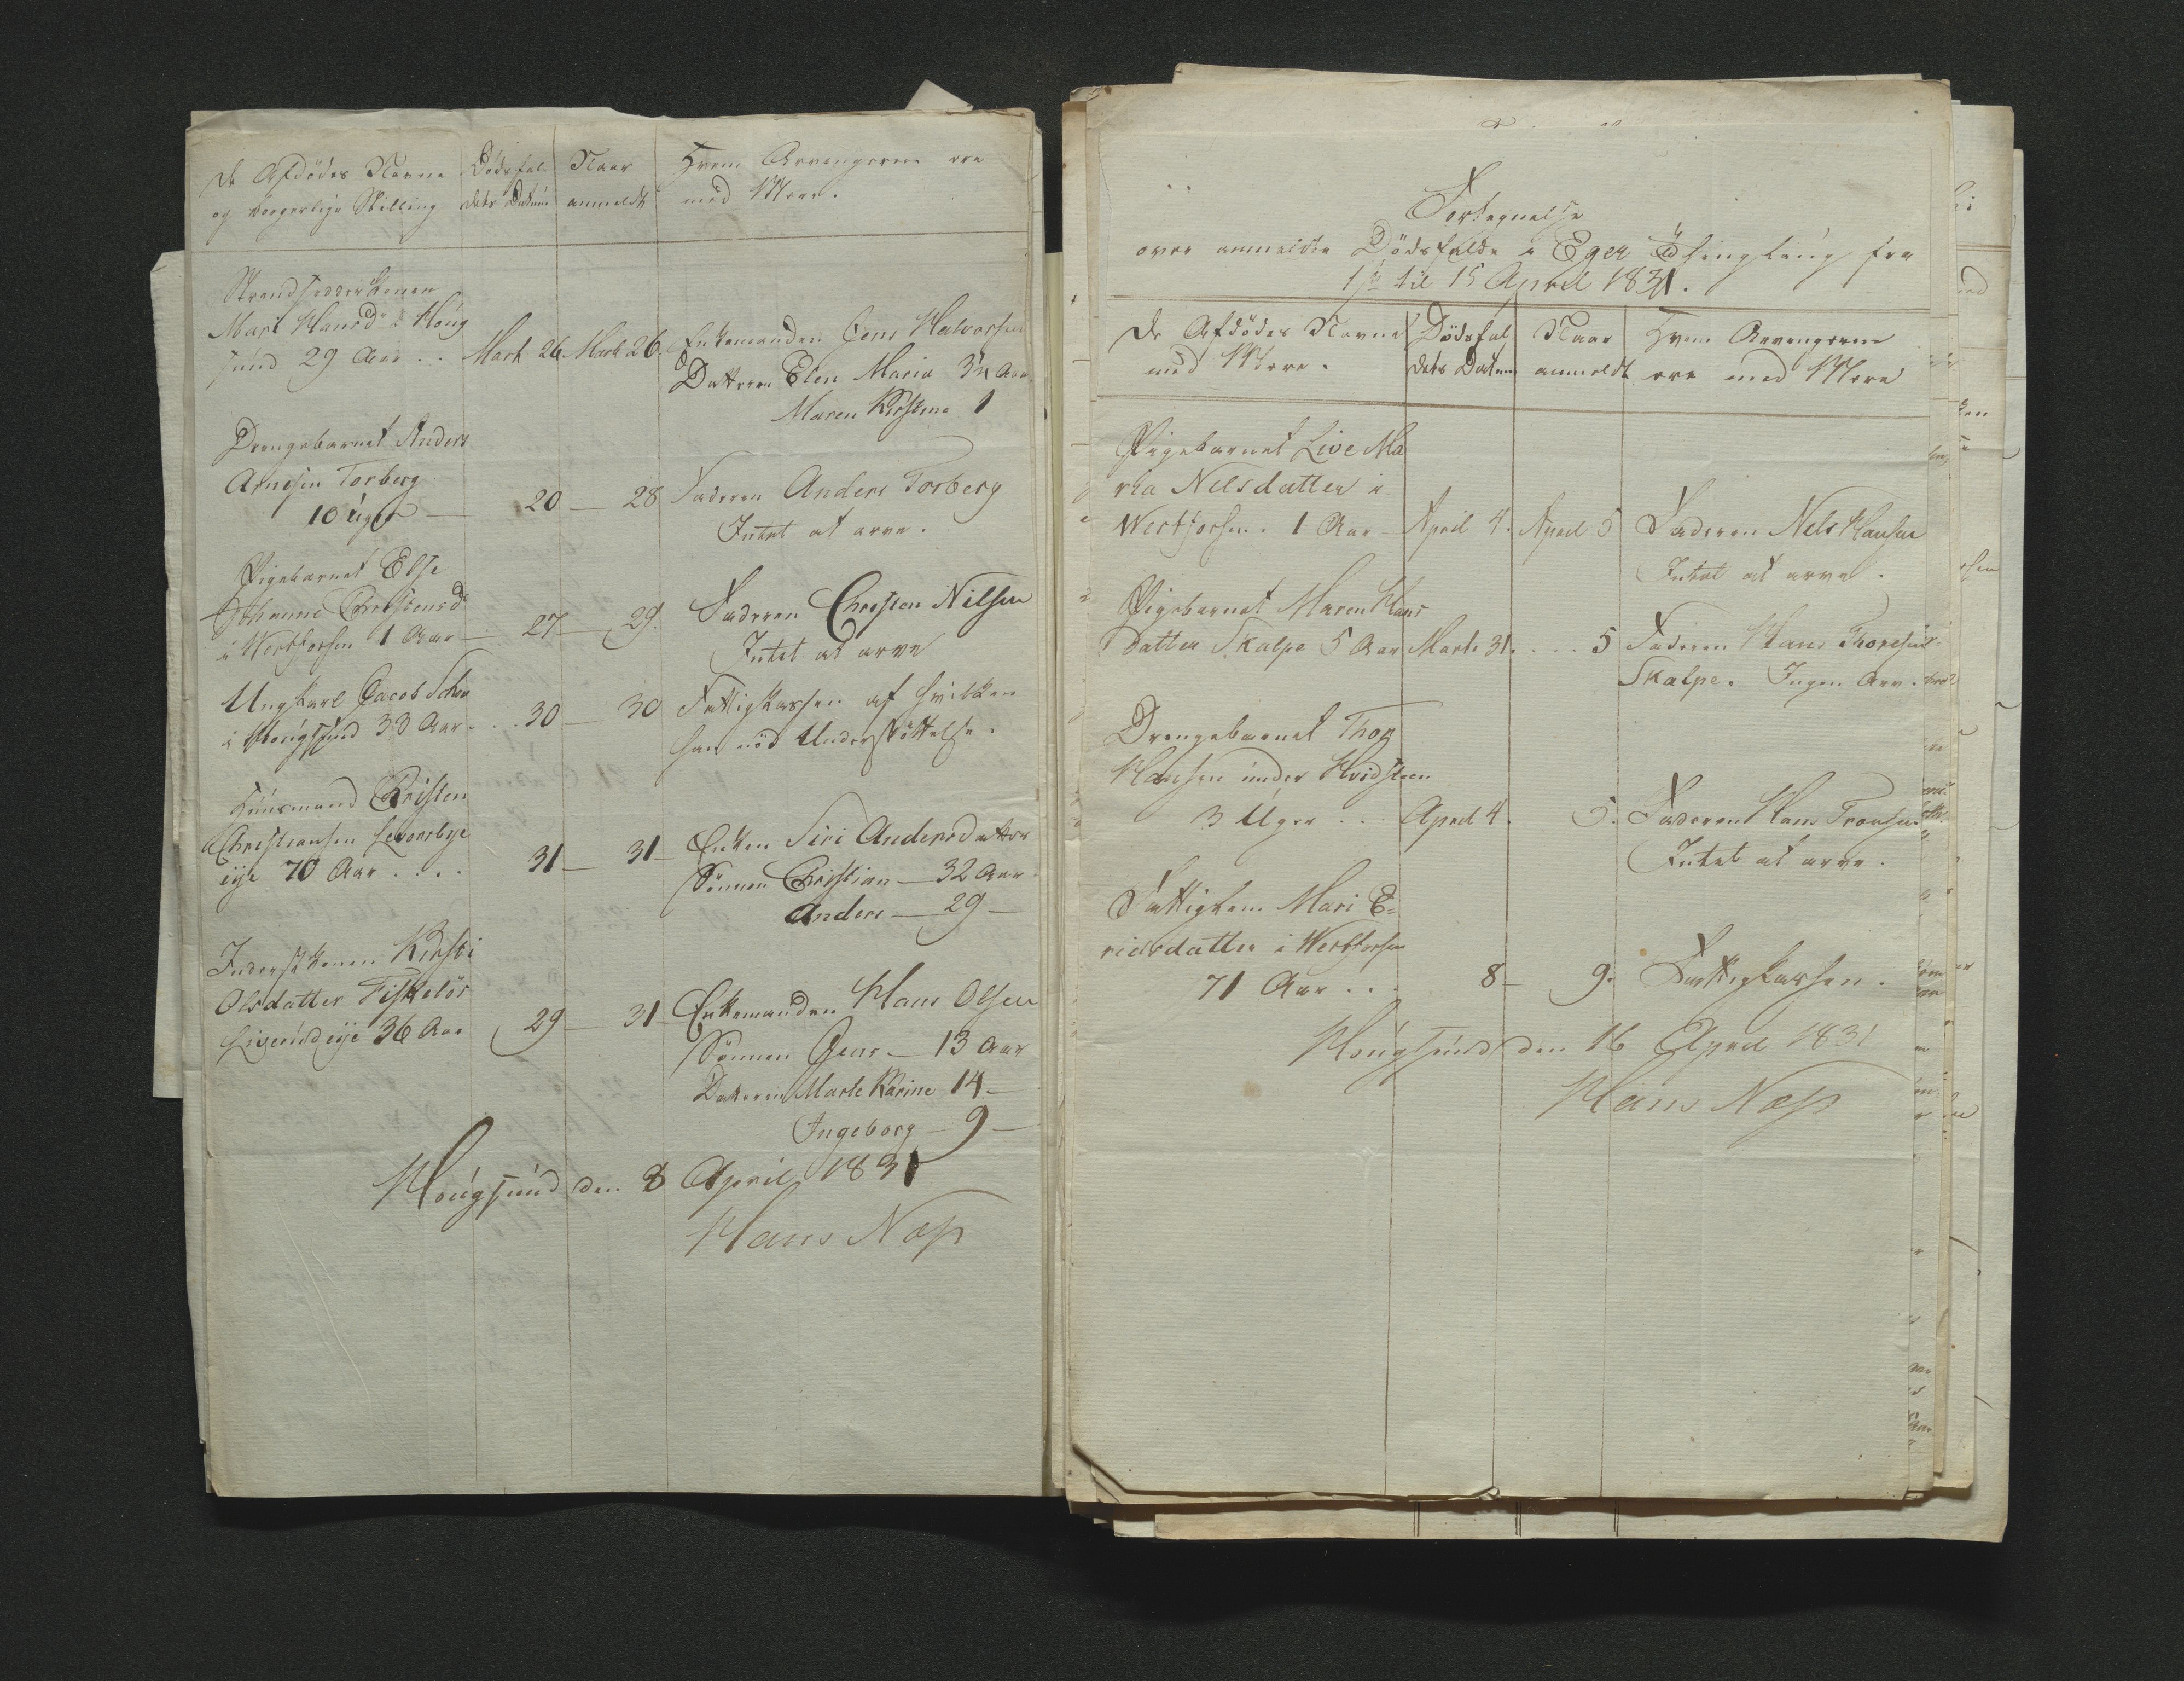 De Afdödes Navne
og borgerlige Stilling
Dödsfal
dets Datum
Naar
anmeldt
Hvem Arvingerne ere
med Mere.
Strandsidderkonen
Mari Hansd. i Houg
sund 29 Aar . . Mart 26 Mart 26. Enkemanden Jens Halvorsen
Datteren Elen Maria 3½ Aar
Maren Kirstine 1
Drengebarnet Anders
Arnesen Torberg
10 Uger — 20 — 28 Faderen Anders Torberg
Intet at arve.
Pigebarnet Else
Johanne Christensd.
i Vestfossen 1 Aar — 27 — 29. Faderen Christen Nilsen
Intet at arve
Ungkarl Jacob
i Hougsund 33 Aar . . 30 — 30 Fattigkassen af hvilken
han nöd Understöttelse.
Huusmand Christen
Christiansen
eje 70 Aar . . . . 31 — 31 — Enken Siri Andersdatter
Sönnen Christian — 32 Aar
Anders — 29 —
Inderstkonen Kirsti
Olsdatter Fiskelös
eje 36 Aar 29 — 31 — Enkemanden Hans Olsen
Sönnen Jens — 13 Aar
Datteren Marte Karine 14 —
Ingeborg — 9 —
Hougsund den 8 April 1831
Hans Næss
Fortegnelse
over anmeldte Dödsfalde i Eger Tinglaug fra
1ste til 15 April 1831.
De Afdödes Navne
med Mere.
Dödsfal
dets Datum
Naar
anmeldt
Hvem Arvingerne
ere med Mere
Pigebarnet Live Ma
ria Nelsdatter i
Westfossen. 1 Aar — April 4. April 5 Faderen Nels Hansen
Intet at arve.
Pigebarnet Maren Hans
datter Skalpe 5 Aar Marts 31. . . . 5 Faderen Hans Thoresen
Skalpe. Ingen Arv.
Drengebarnet Thor
Hansen under Hvidsteen
3 Uger . . April 4. 5. Faderen Hans
Intet at arve.
Fattiglem Mari E=
riksdatter i Westfossen
71 Aar . . . 8 — 9. Fattigkassen.
Hougsund den 16 April 1831
Hans Næss